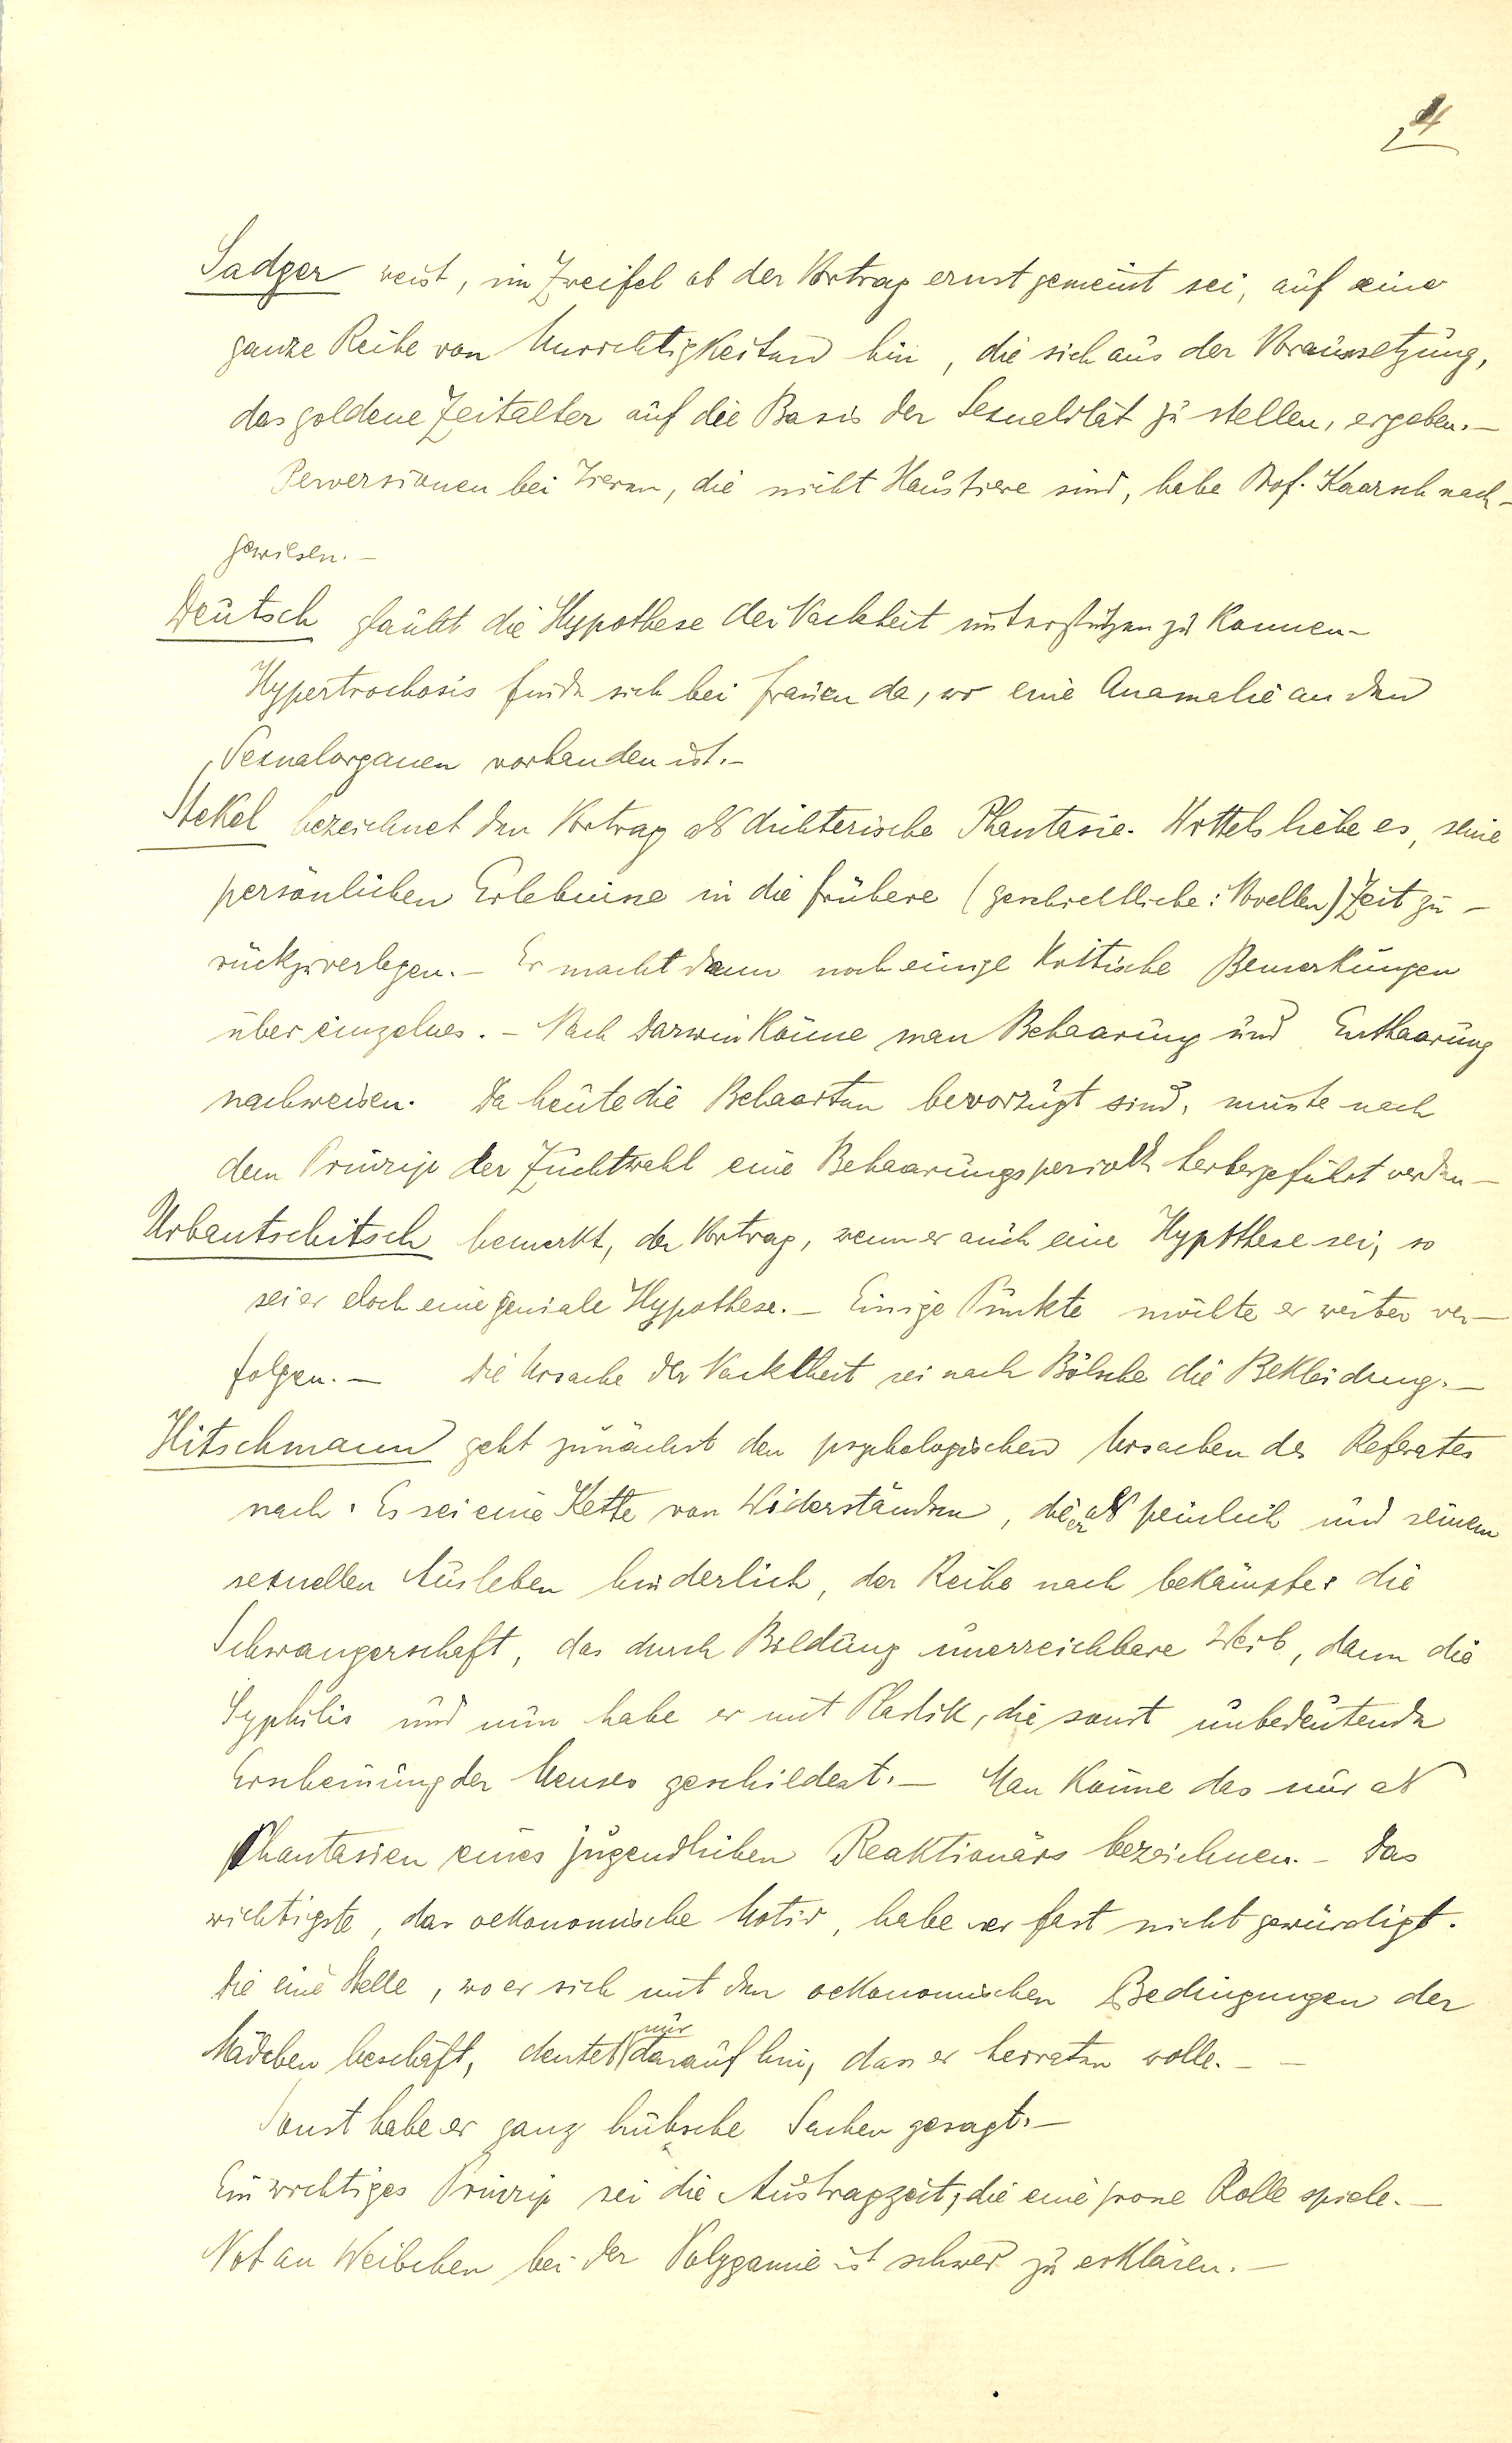 4
Sadger weist, im Zweifel ob der Vortrag ernst gemeint sei, auf eine
ganze Reihe von Unrichtigkeiten hin, die sich aus der Voraussetzung,
das goldene Zeitalter auf die Basis der Sexualität zu stellen, ergeben.—
Perversionen bei Tieren, die nicht Haustiere sind, habe Prof. Kaarsch nach-
gewiesen.—
Deutsch glaubt die Hypothese der Nacktheit unterstützen zu können-
Hypertrochosis finde sich bei Frauen da, wo eine Anomalie an den
Sexualorganen vorhanden ist.—
Stekel bezeichnet den Vortrag als dichterische Phantasie. Wittels liebe es, seine
persönlichen Erlebnisse in die frühere (geschichtliche: Novellen) Zeit zu-
rückzuverlegen.— Er macht dann noch einige kritische Bemerkungen
über einzelnes.— Nach Darwin könne man Behaarung und Enthaarung
nachweisen. Da heute die Behaarten bevorzugt sind, musste nach
dem Prinzip der Zuchtwahl eine Behaarungsperiode herbeigeführt werden—
Urbantschitsch bemerkt, der Vortrag, wenn er auch eine Hypothese sei, so
sei er doch eine geniale Hypothese.— Einige Punkte möchte er weiter ver-
folgen.— Die Ursache der Nacktheit sei nach Bölsche die Bekleidung.—
Hitschmann geht zunächst den psychologischen Ursachen des Referates
nach. Es sei eine Kette von Widerständen, die er als peinlich und seinem
sexuellen Ausleben hinderlich, der Reihe nach bekämpfe: die
Schwangerschaft, das durch Bildung unerreichbare Weib, dann die
Syphilis und nun habe er mit Plastik, die sonst unbedeutende
Erscheinung der Menses geschildert.— Man könne das nur als
Phantasien eines jugendlichen Reaktionärs bezeichnen.— Das
wichtigste, das oekonomische Motiv, habe er fast nicht gewürdigt.
Die eine Stelle, wo er sich mit den oekonomischen Bedingungen der
Mädchen beschäft, deutet nur darauf hin, dass er heiraten wolle.— —
Sonst habe er ganz hübsche Sachen gesagt.—
Ein wichtiges Prinzip sei die Austragzeit, die eine grosse Rolle spiele.—
Not an Weibchen bei der Polygamie ist schwer zu erklären.—